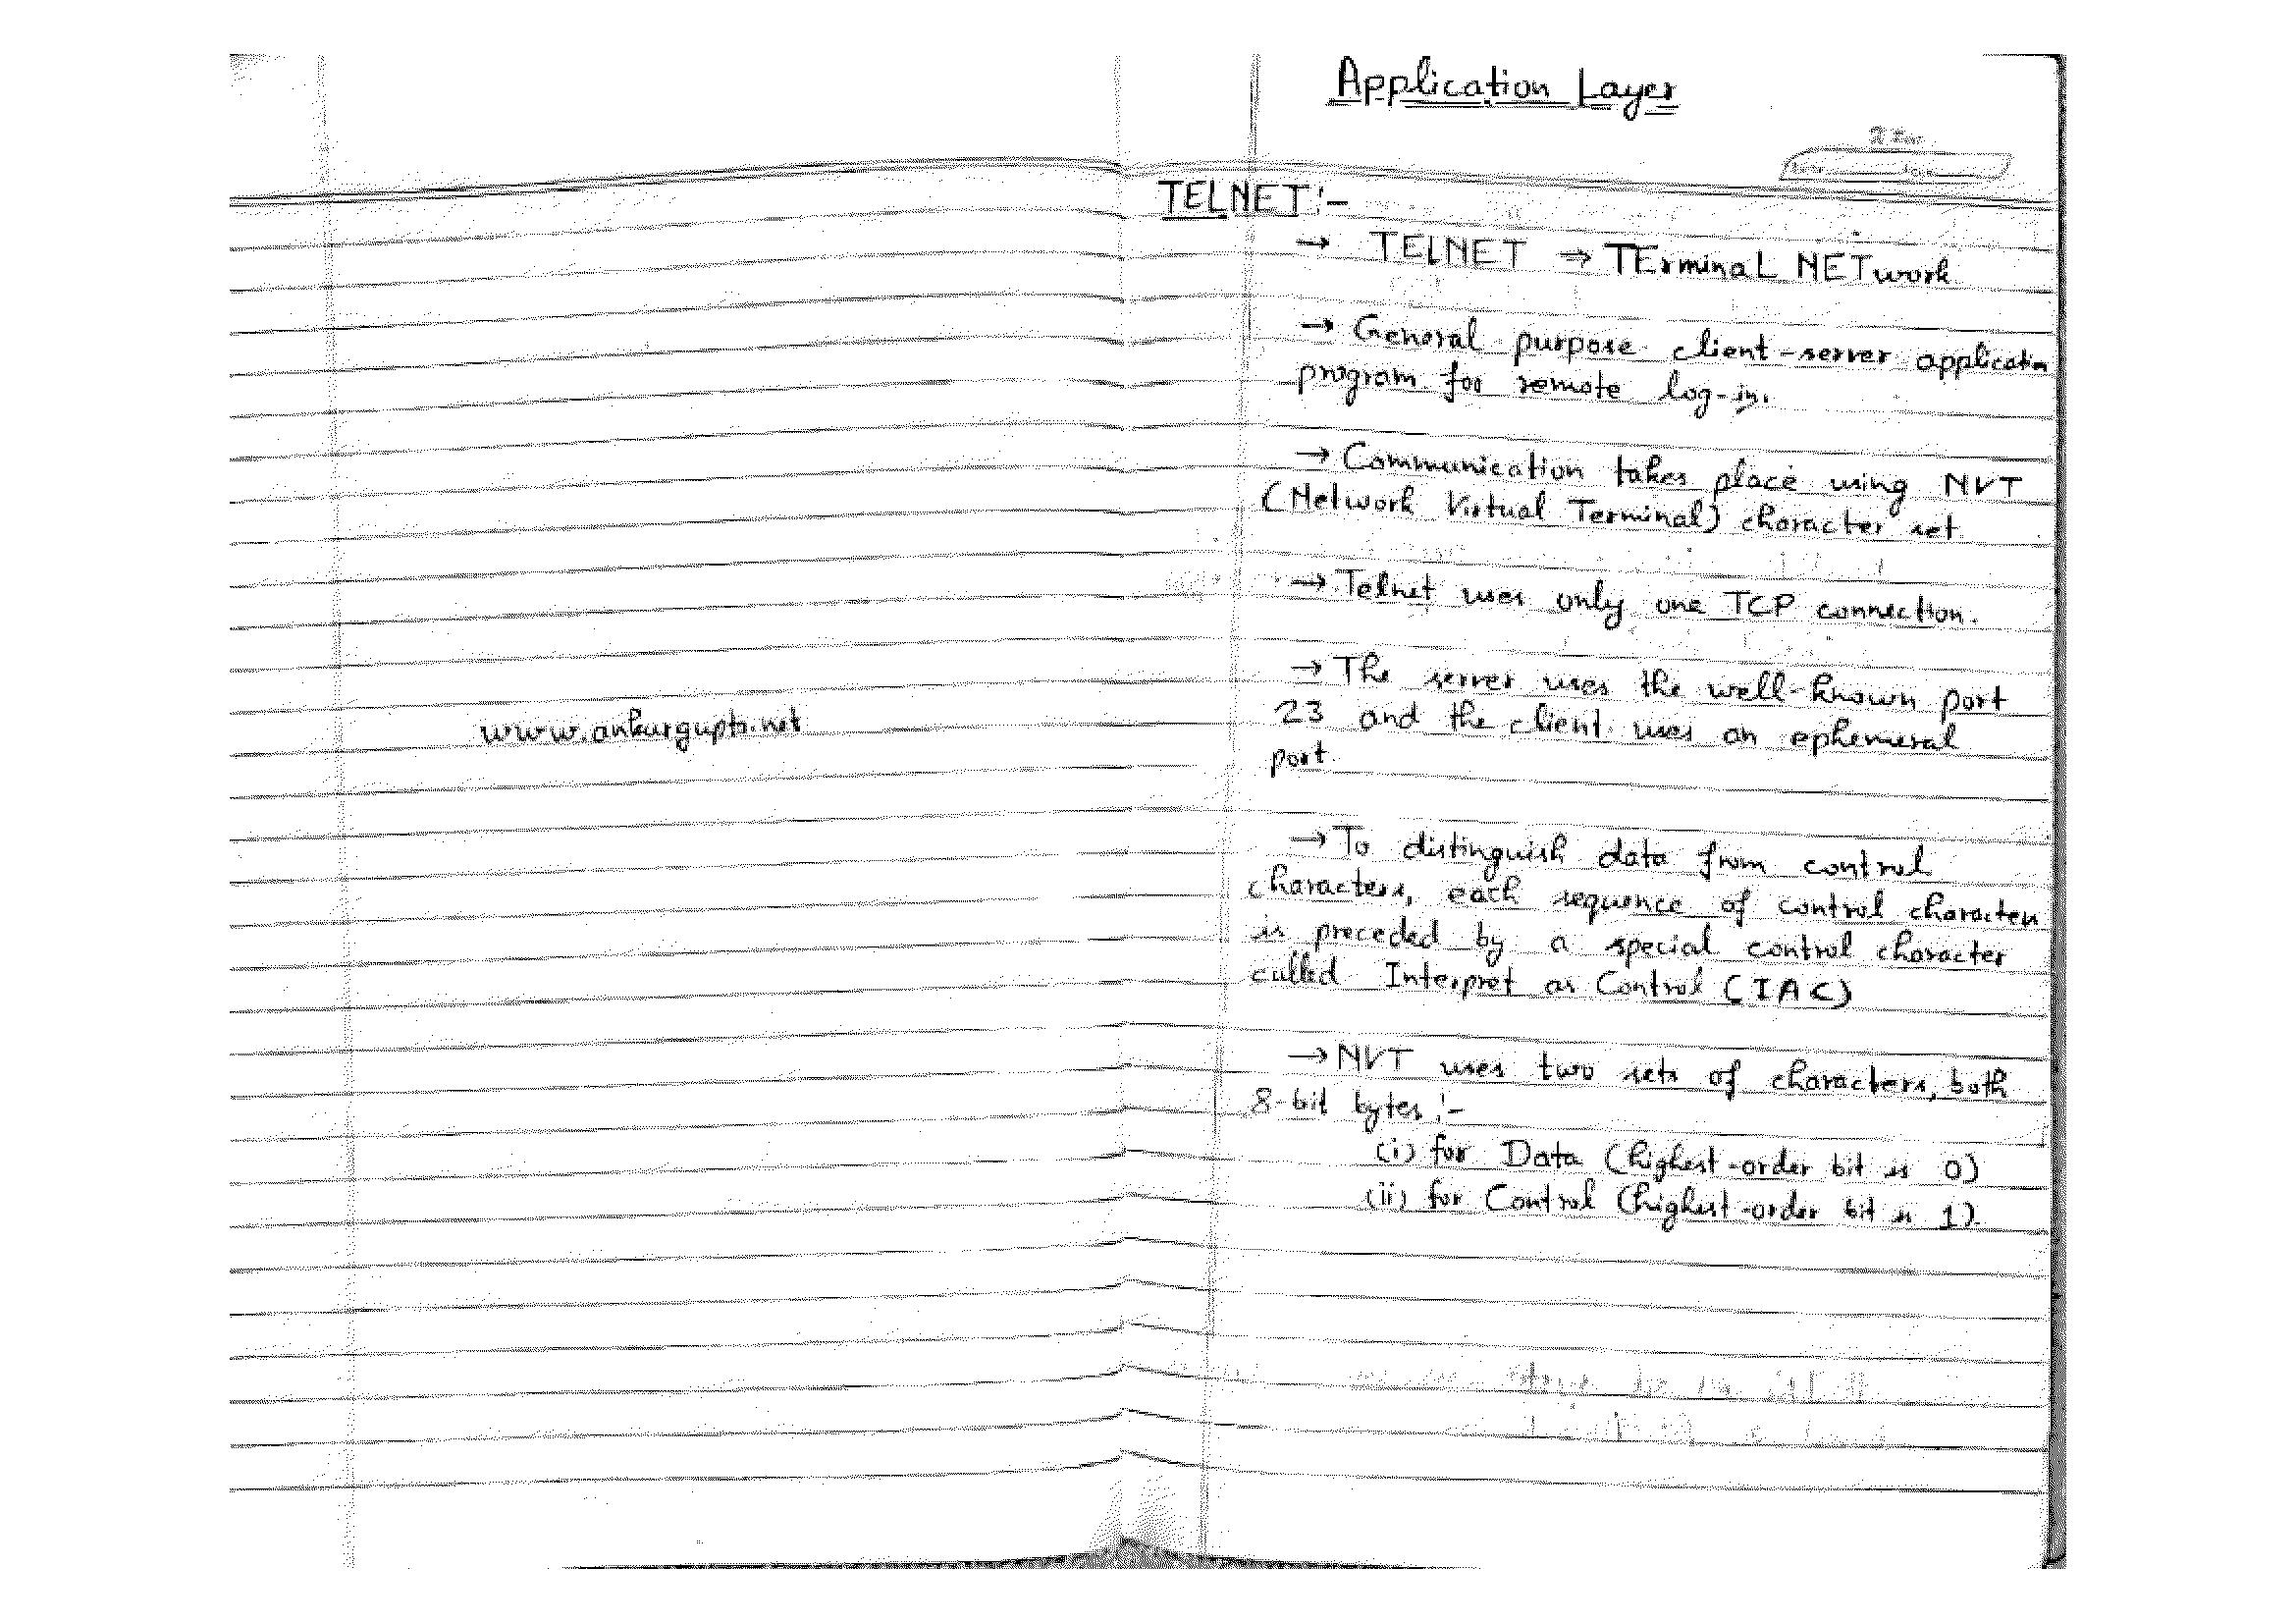 www.ankurgupta.net
Application Layer
TELNET :-
→ TELNET ⇒ TErminaL NETwork
→ General purpose client-server application
program for remote log-in.
→ Communication takes place using NVT
(Network Virtual Terminal) character set
→ Telnet uses only one TCP connection.
→ The server uses the well-known port
23 and the client uses an ephemeral
port.
→ To distinguish data from control
characters, each sequence of control characters
is preceded by a special control character
called Interpret as Control (IAC)
→ NVT uses two sets of characters, both
8-bit bytes :-
(i) for Data (highest-order bit is 0)
(ii) for Control (highest-order bit is 1).